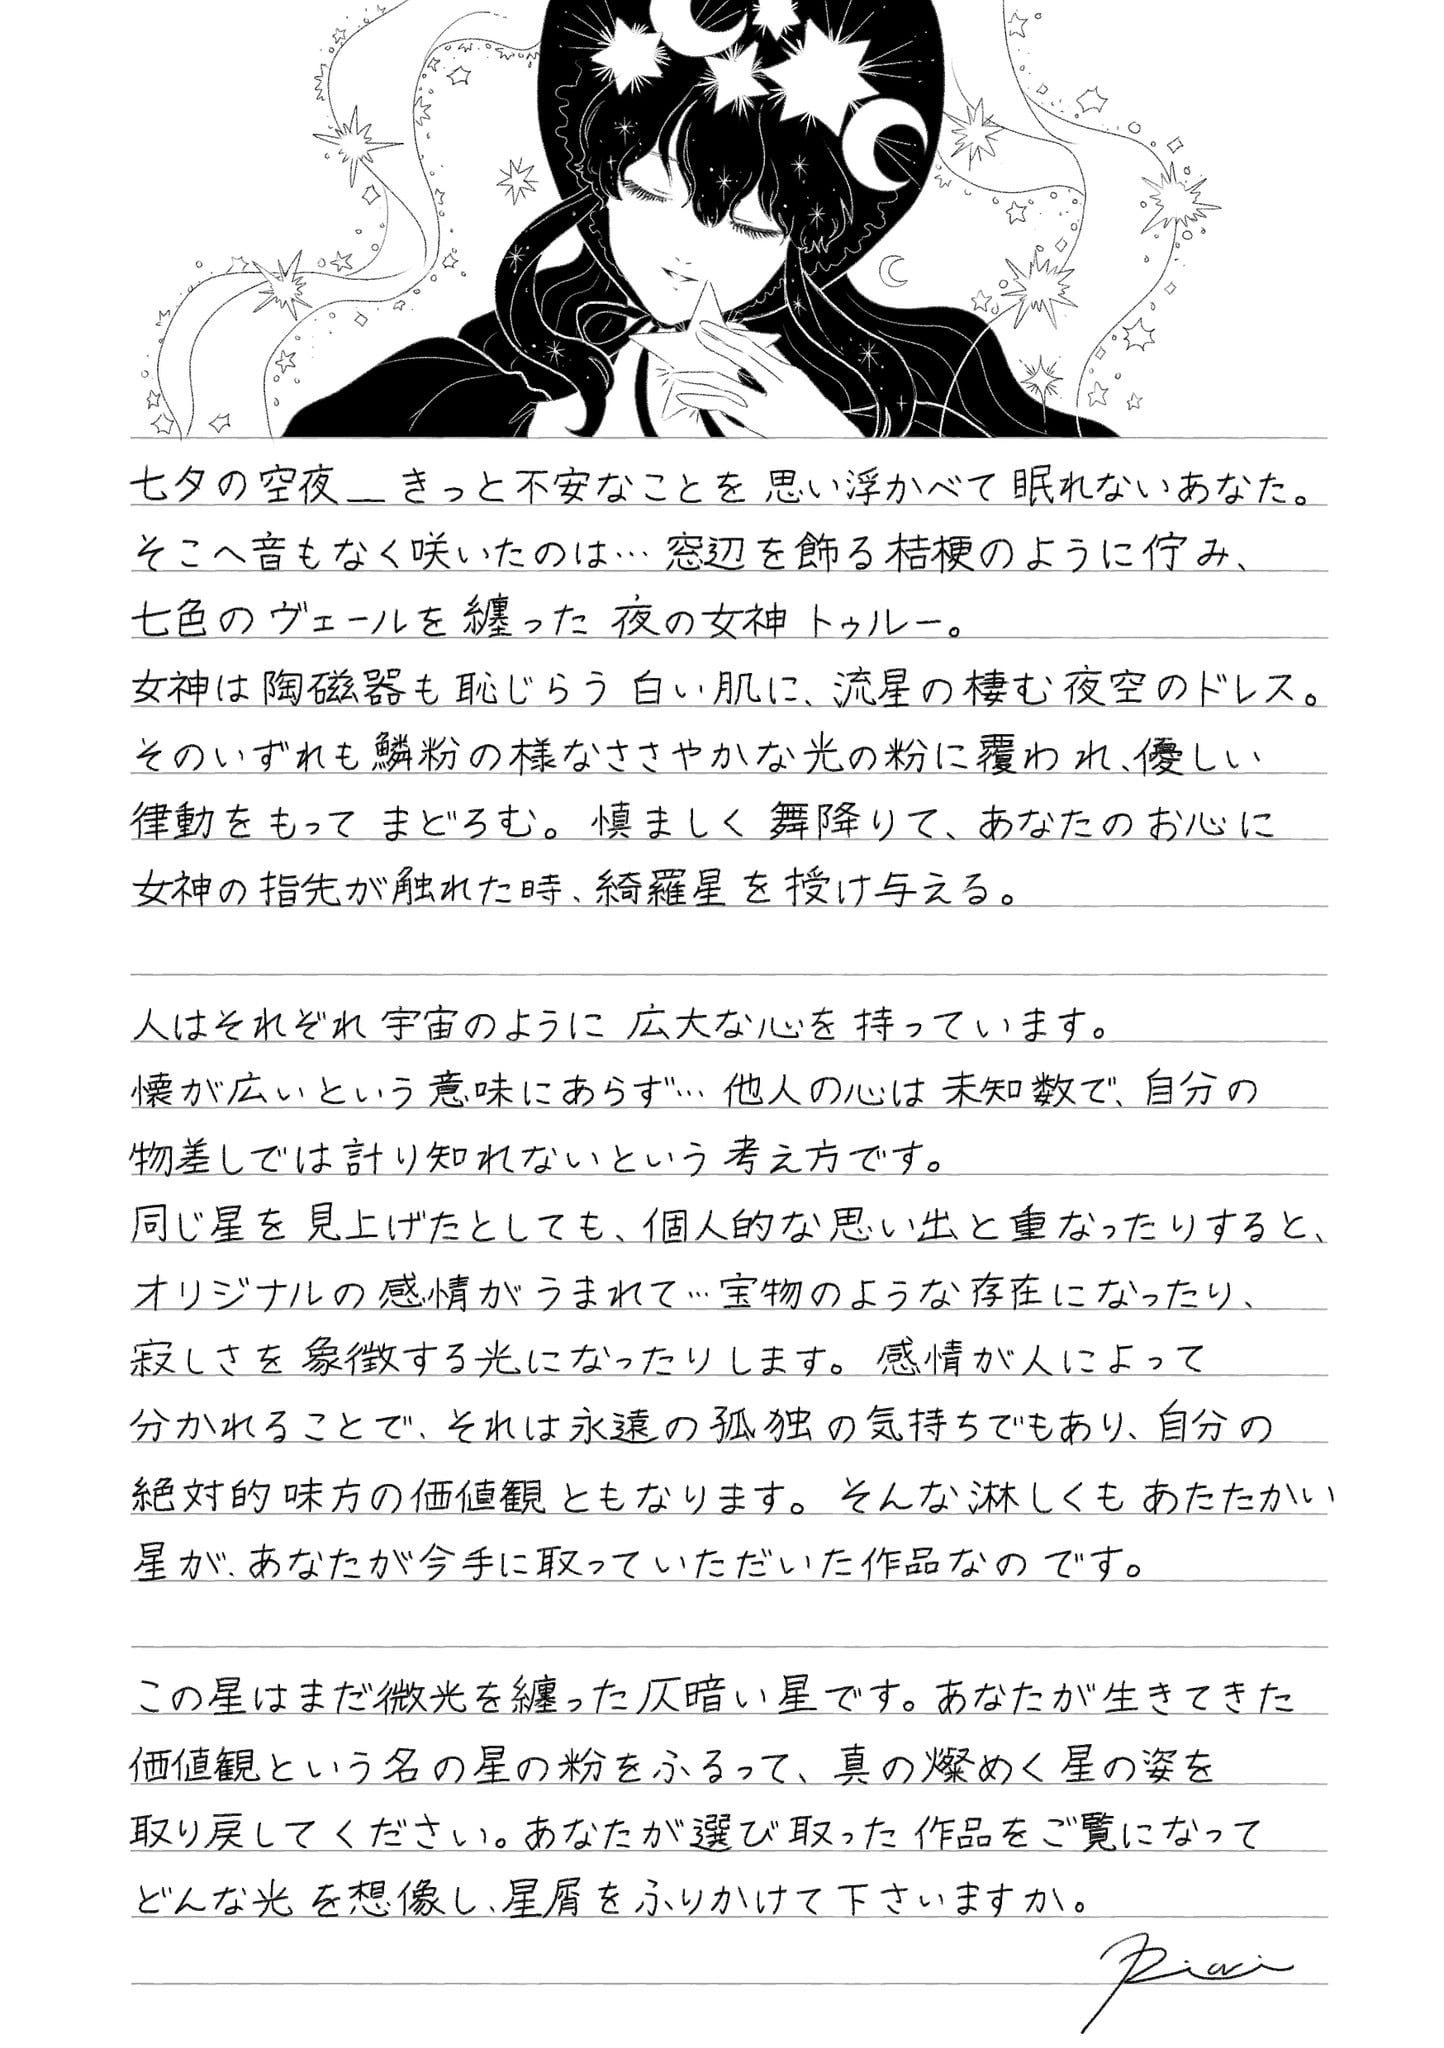 七夕の空夜__きっと不安なことを思い浮かべて眠れないあなた。
そこへ音もなく咲いたのは…窓辺を飾る桔梗のように佇み、
七色のヴェールを纏った夜の女神トゥルー。
女神は陶磁器も恥じらう白い肌に、流星の棲む夜空のドレス。
そのいずれも鱗粉の様なささやかな光の粉に覆われ、優しい
律動をもってまどろむ。慎ましく舞降りて、あなたのお心に
女神の指先が触れた時、綺羅星を授け与える。
人はそれぞれ宇宙のように広大な心を持っています。
懐が広いという意味にあらず…他人の心は未知数で、自分の
物差しでは計り知れないという考え方です。
同じ星を見上げたとしても、個人的な思い出と重なったりすると、
オリジナルの感情がうまれて…宝物のような存在になったり、
寂しさを象徴する光になったりします。感情が人によって
分かれることで、それは永遠の孤独の気持ちでもあり、自分の
絶対的味方の価値観ともなります。そんな淋しくもあたたかい
星が、あなたが今手に取っていただいた作品なのです。
この星はまだ微光を纏った仄暗い星です。あなたが生きてきた
価値観という名の星の粉をふるって、真の燦めく星の姿を
取り戻してください。あなたが選び取った作品をご覧になって
どんな光を想像し、星屑をふりかけて下さいますか。